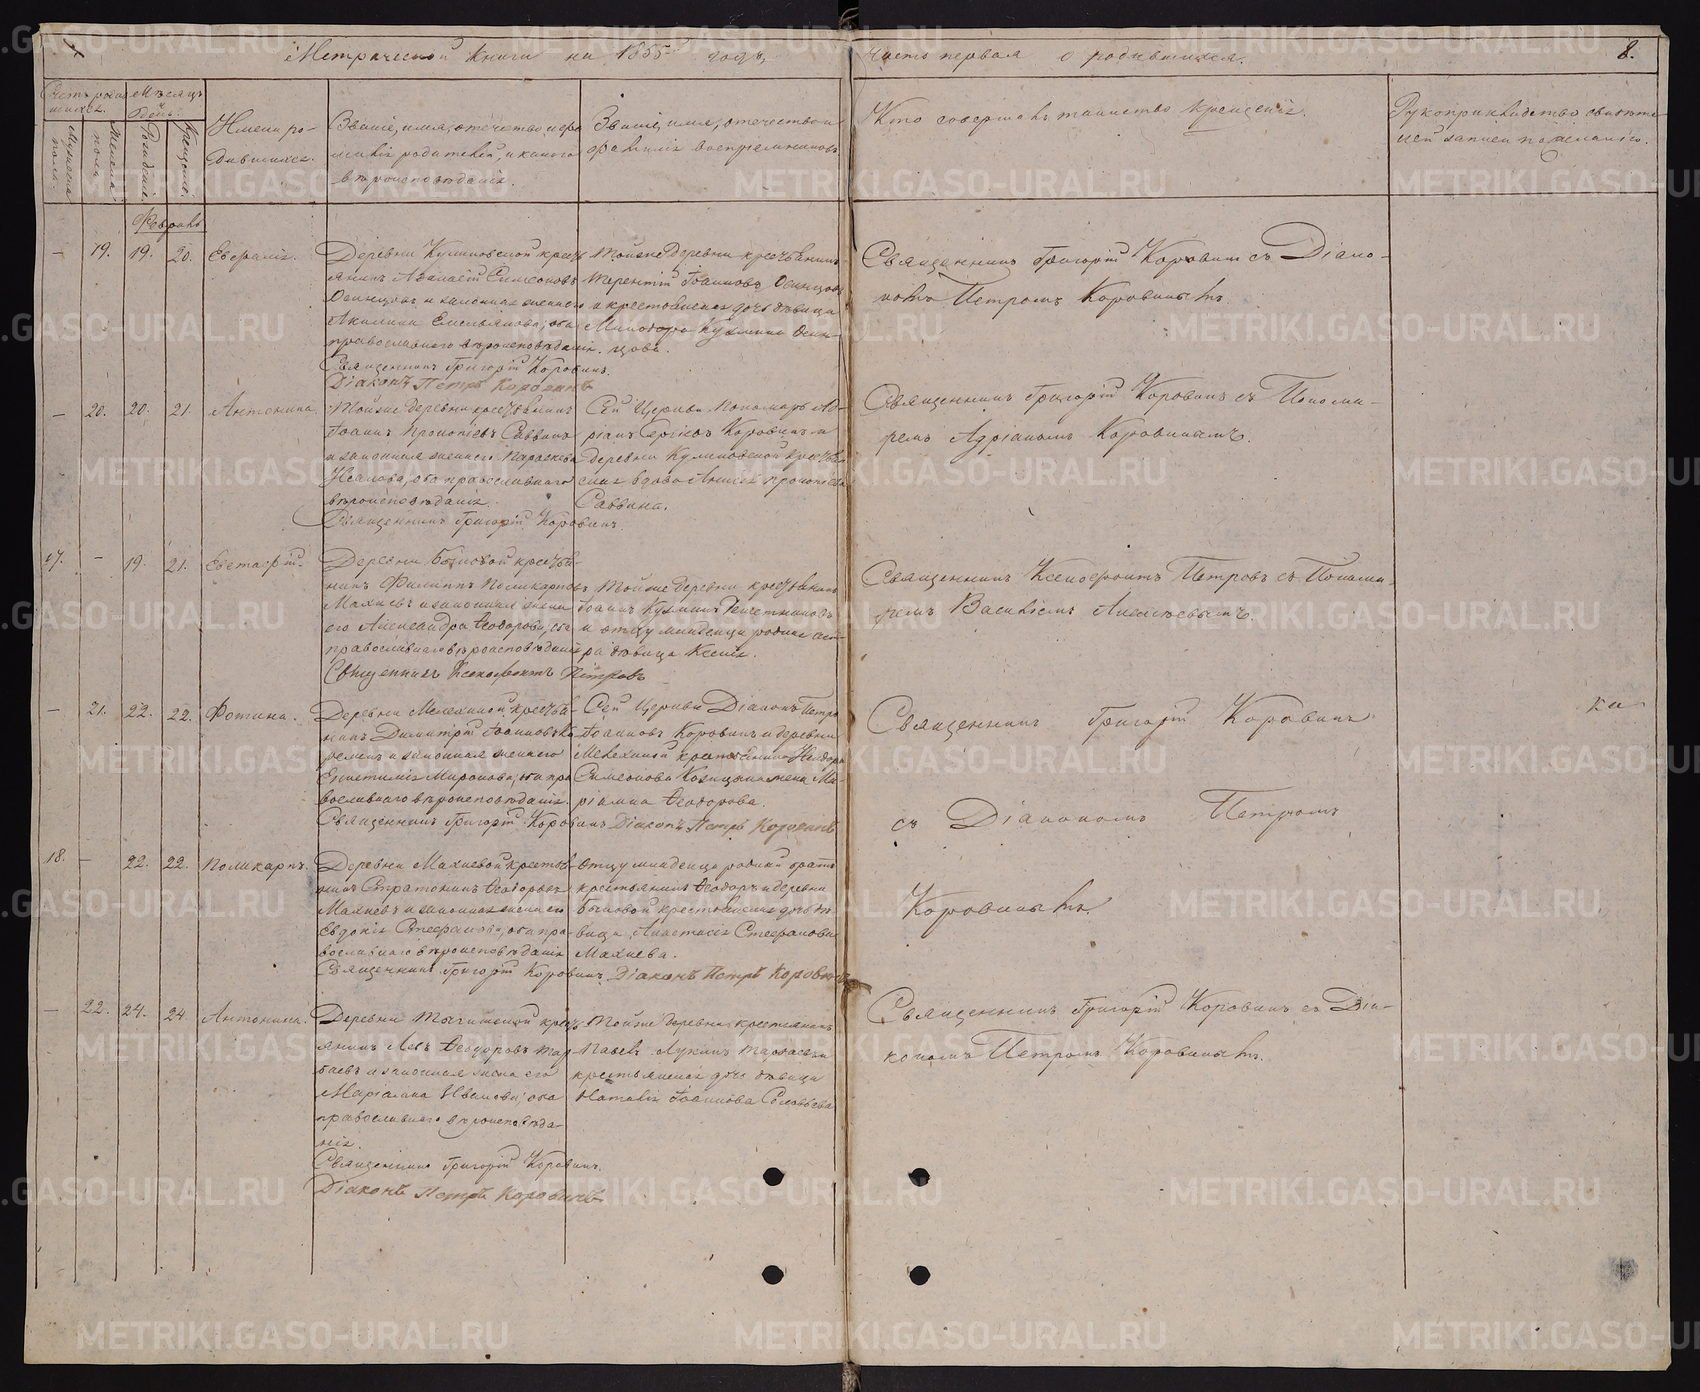 Метрической книги на 1855 годъ,
часть первая о родившихся.
8.
Счетъ родив-
шихся.
Мѣсяцъ
и день.
Мужеска
пола.
Женска
пола.
Рожденія.
Крещенія.
Имена ро-
дившихся.
Званіе, имя, отечество и фа-
милія родителей, и какого
вѣроисповѣданія.
Званіе, имя, отечество и
фамилія воспріемниковъ
Кто совершалъ таинство крещенія.
Рукоприкладство свидѣте-
лей записи по желанію.
Февраль
— 19. 19. 20. Евфалія.
Деревни Куликовской крест
янинъ Аѳанасій Симеоновъ
Осинцовъ и законная жена его
Акилина Емельянова; оба
православнаго вѣроисповѣданія.
Священникъ Григорій Коровинъ.
Діаконъ Петръ Коровинъ
Тойже деревни крестьянинъ
Терентій Іоанновъ Осинцовъ
и крестьянская дочь дѣвица
Минодора Кузмина Осин-
цова.
Священникъ Григорій Коровинъ съ Діако-
номъ Петромъ Коровинымъ.
— 20. 20. 21. Антонина.
Тойже деревни крестьянинъ
Іоаннъ Прокопіевъ Саввинъ
и законная жена его Параскева
Исакова, оба православнаго
вѣроисповѣданія.
Священникъ Григорій Коровинъ.
Сей Церкви Пономарь Ад-
ріанъ Сергіевъ Коровинъ и
деревни Куликовской крестьян
ская вдова Анисія Прокопіева
Саввина.
Священникъ Григорій Коровинъ съ Понома-
ремъ Адріаномъ Коровинымъ.
17. — 19. 21. Евстафій.
Деревни Бычковой крестья-
нинъ Филиппъ Поликарповъ
Махневъ и законная жена
его Александра Ѳеодорова; оба
православнаго вѣроисповѣданія
Священникъ Ксенофонтъ Петровъ
Тойже деревни крестьянинъ
Іоаннъ Кузминъ
и отцу младенца родная сест-
ра дѣвица Ксенія.
Священникъ Ксенофонтъ Петровъ съ Понома-
ремъ Василіемъ Алексѣевымъ.
— 21. 22. 22. Фотина.
Деревни Мелехиной крестья-
нинъ Димитрій Іоанновъ
и законная жена его
Епистимія Миронова, оба пра
вославнаго вѣроисповѣданія.
Священникъ Григорій Коровинъ Діаконъ Петръ Коровинъ
Сей Церкви Діаконъ Петръ
Іоанновъ Коровинъ и деревни
Мелехиной крестьянина
Симеонова жена Ма-
ріамна Ѳеодорова.
Священникъ Григорій Коровинъ
съ Діакономъ Петромъ
Коровинымъ.
18. — 22. 22. Поликарпъ.
Деревни Махневой крестья-
нинъ Стратоникъ Ѳеодоровъ
Махневъ и законная жена его
Евдокія Стефанова, оба пра-
вославнаго вѣроисповѣданія
Священникъ Григорій Коровинъ. Діаконъ Петръ Коровинъ
Отцу младенца родной братъ
крестьянинъ Ѳеодоръ и деревни
Бычковой крестьянская дочь дѣ-
вица Анастасія Стефанова
Махнева.
— 22. 24. 24. Антонина.
Деревни крест
янинъ Левъ Ѳеодоровъ
и законная жена его
Маріамна Иванова; оба
православнаго вѣроисповѣда-
нія.
Священникъ Григорій Коровинъ.
Діаконъ Петръ Коровинъ
Тойже деревни крестьянинъ
Павелъ Лукинъ и
крестьянская дочь дѣвица
Наталія Іоаннова Соловьева
Священникъ Григорій Коровинъ съ Діа-
кономъ Петромъ Коровинымъ.
METRIKI.GASO-URAL.RU